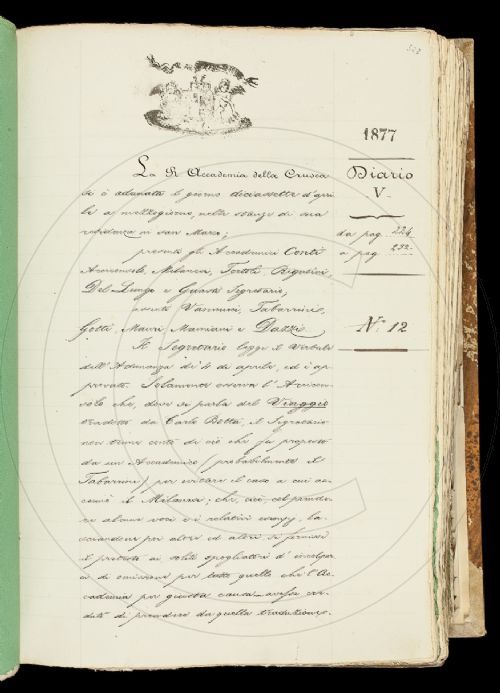 1877
Diario
V.
da pag. 224
a pag. 232
N.° 12
La R. Accademia della Crusca
si è adunata il giorno diciassette d'apri-
le a mezzogiorno, nelle stanze di sua
residenza in san Marco;
presenti gli Accademici Conti
Arciconsolo, Milanesi, Tortoli, Rigutini,
Del Lungo e Guasti Segretario;
assenti Vannucci, Tabarrini,
Gotti, Mauri, Mamiani e Dazzi.
Il Segretario legge il Verbale
dell'Adunanza de' 4 di aprile, ed è ap-
provato. Solamente osserva l'Arcicon-
solo che, dove si parla del Viaggio
tradotto da Carlo Botta, il Segretario
non tenne conto di ciò che fu proposto
da un Accademico (probabilmente il
Tabarrini) per evitare il caso a cui ac-
cennò il Milanesi; che, cioè, col prende-
re alcune voci e i relativi esempj, la-
sciandone poi altre ed altri, si fornisse
il pretesto ai soliti spogliatori d'incolpar-
ci di omissione per tutte quelle che l'Ac-
cademia per giusta causa avesse cre-
duto di prendere da quella traduzione.